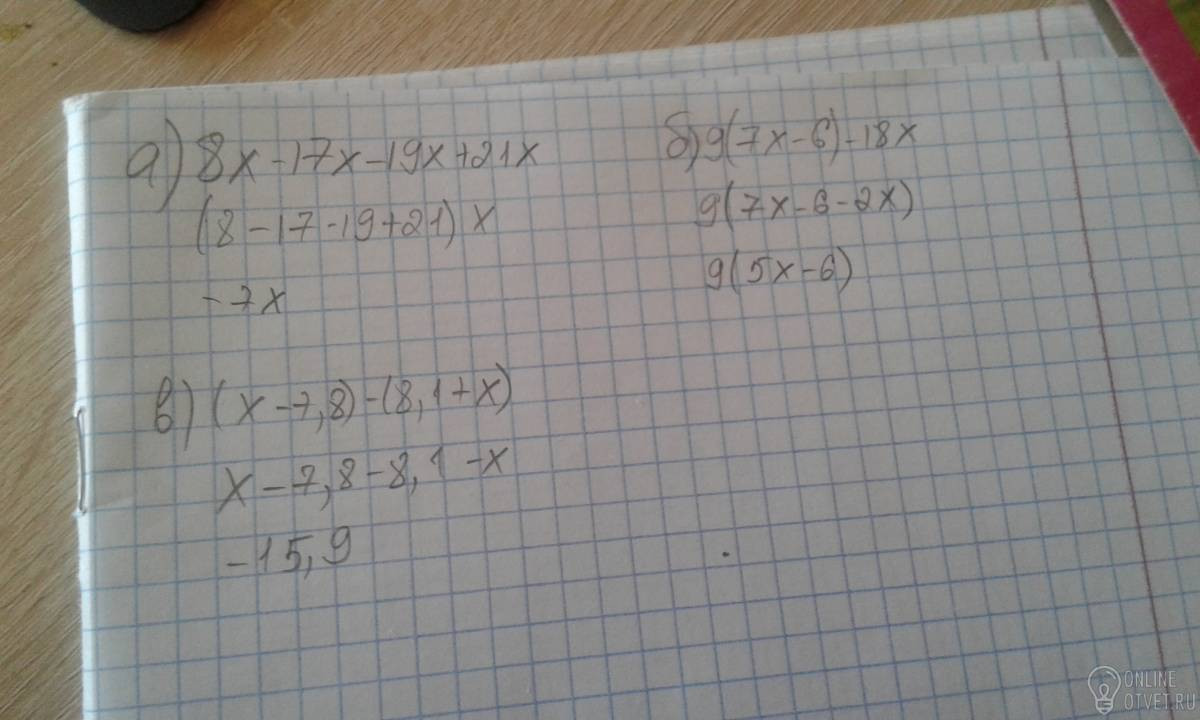 а) 8x-17x-19x+21x
(8-17-19+21)x
-7x
б) 9(7x-6)-18x
9(7x-6-2x)
9(5x-6)
в) (x-7,8)-(8,1+x)
x-7,8-8,1-x
-15,9
ONLINE
OTVET.RU